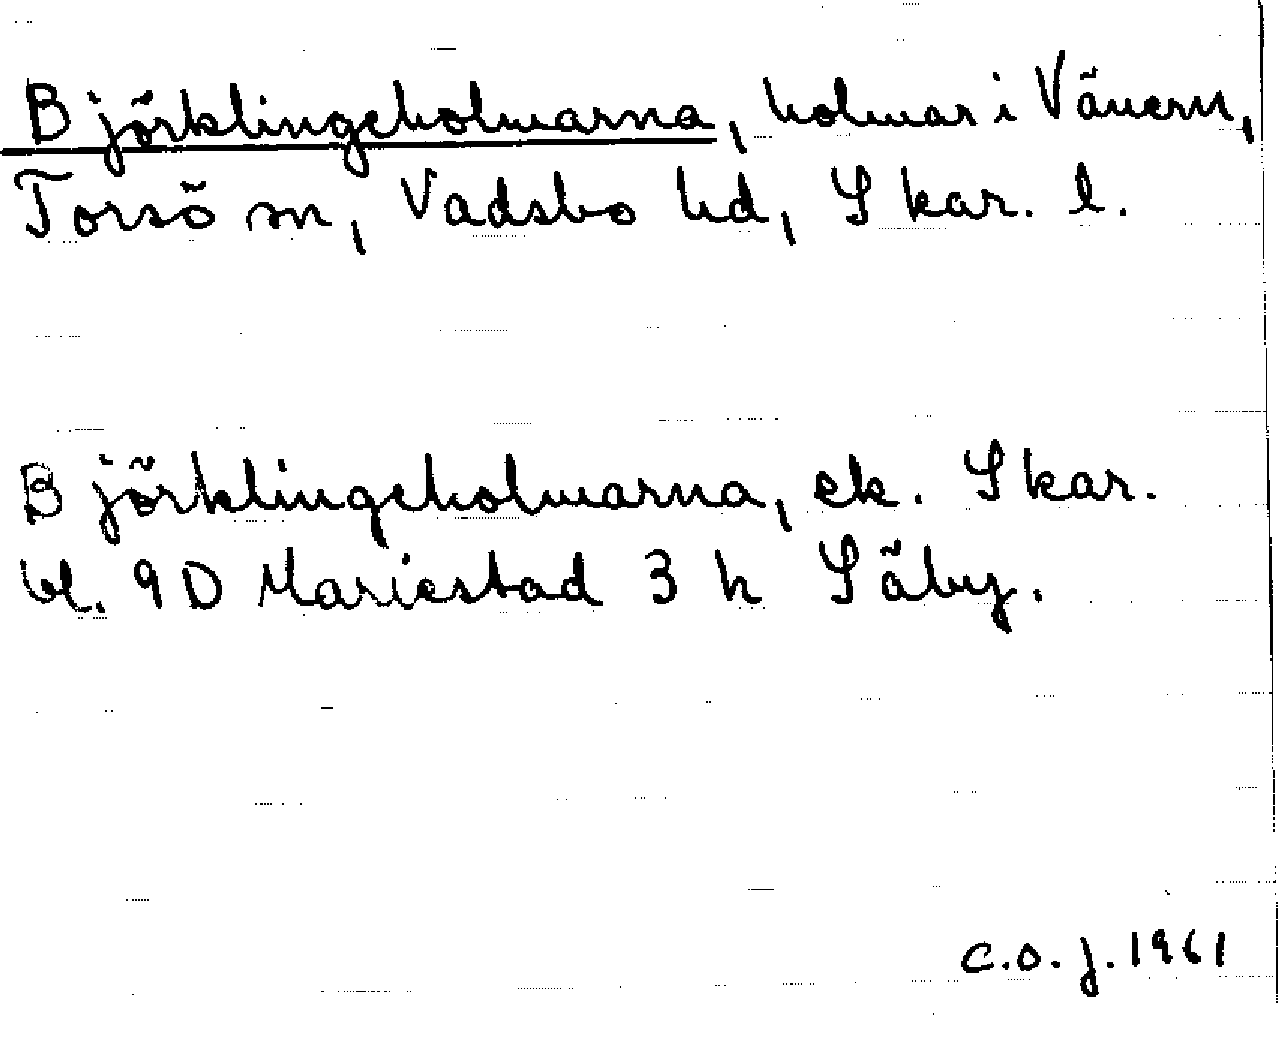 Björklingeholmarna, holmar i Vänern,
Torsö sn, Vadsbo hd, Skar. l.
Björklingeholmarna, ek. Skar.
bl. 9D Mariestad 3 h Säby.
C.O.J. 1961